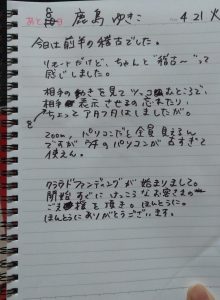 あと 日 鹿島ゆきこ 4.21 火
今日は前半の稽古でした。
リモートだけど、ちゃんと"稽古〜"って
感じしました。
相手の動きを見てツッコむところで、
相手表示させるの忘れたり、
ちょっとアタフタはしましたが。
zoom、パソコンだと全員見えるん
ですが ウチのパソコンが古すぎて
使えん。
クラウドファンディングが始まりまして。
開始すぐにけっこうなお客さまの
ご支援を頂き。ほんとうに。
ほんとうにありがとうございます。